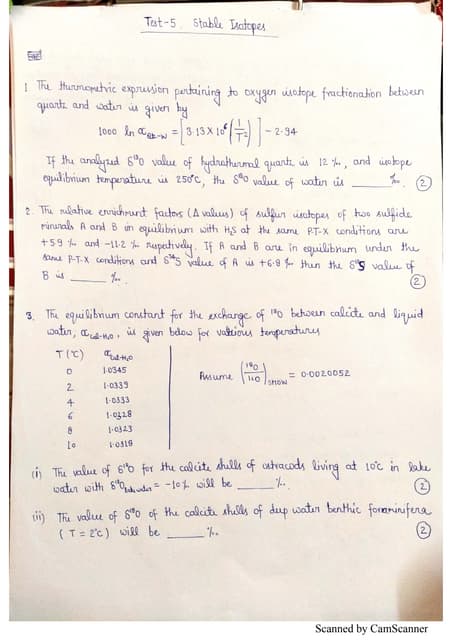 Test-5 Stable Isotopes
1 The thermometric expression pertaining to oxygen isotope fractionation between
quartz and water is given by
1000 ln α Qtz-W = [3.13 × 10⁶ (1/T²)] - 2.94
If the analyzed δ¹⁸O value of hydrothermal quartz is 12 ‰, and isotope
equilibrium temperature is 250°C, the δ¹⁸O value of water is ____ ‰. (2)
2. The relative enrichment factors (Δ values) of sulfur isotopes of two sulfide
minerals A and B in equilibrium with H₂S at the same P-T-X conditions are
+5.9 ‰ and -11.2 ‰ respectively. If A and B are in equilibrium under the
same P-T-X conditions and δ³⁴S value of A is +6.8 ‰ then the δ³⁴S value of
B is ____ ‰.
(2)
3. The equilibrium constant for the exchange of ¹⁸O between calcite and liquid
water, α cal-H₂O, is given below for various temperatures
T (°C) α cal-H₂O
0 1.0345
2 1.0339
4 1.0333
6 1.0328
8 1.0323
10 1.0318
Assume (¹⁸O/¹⁶O) SMOW = 0.0020052
(i) The value of δ¹⁸O for the calcite shells of ostracods living at 10°C in lake
water with δ¹⁸O lake water = -10 ‰ will be ____ ‰.
(2)
(ii) The value of δ¹⁸O of the calcite shells of deep water benthic foraminifera
(T = 2°C) will be ____ ‰.
(2)
Scanned by CamScanner